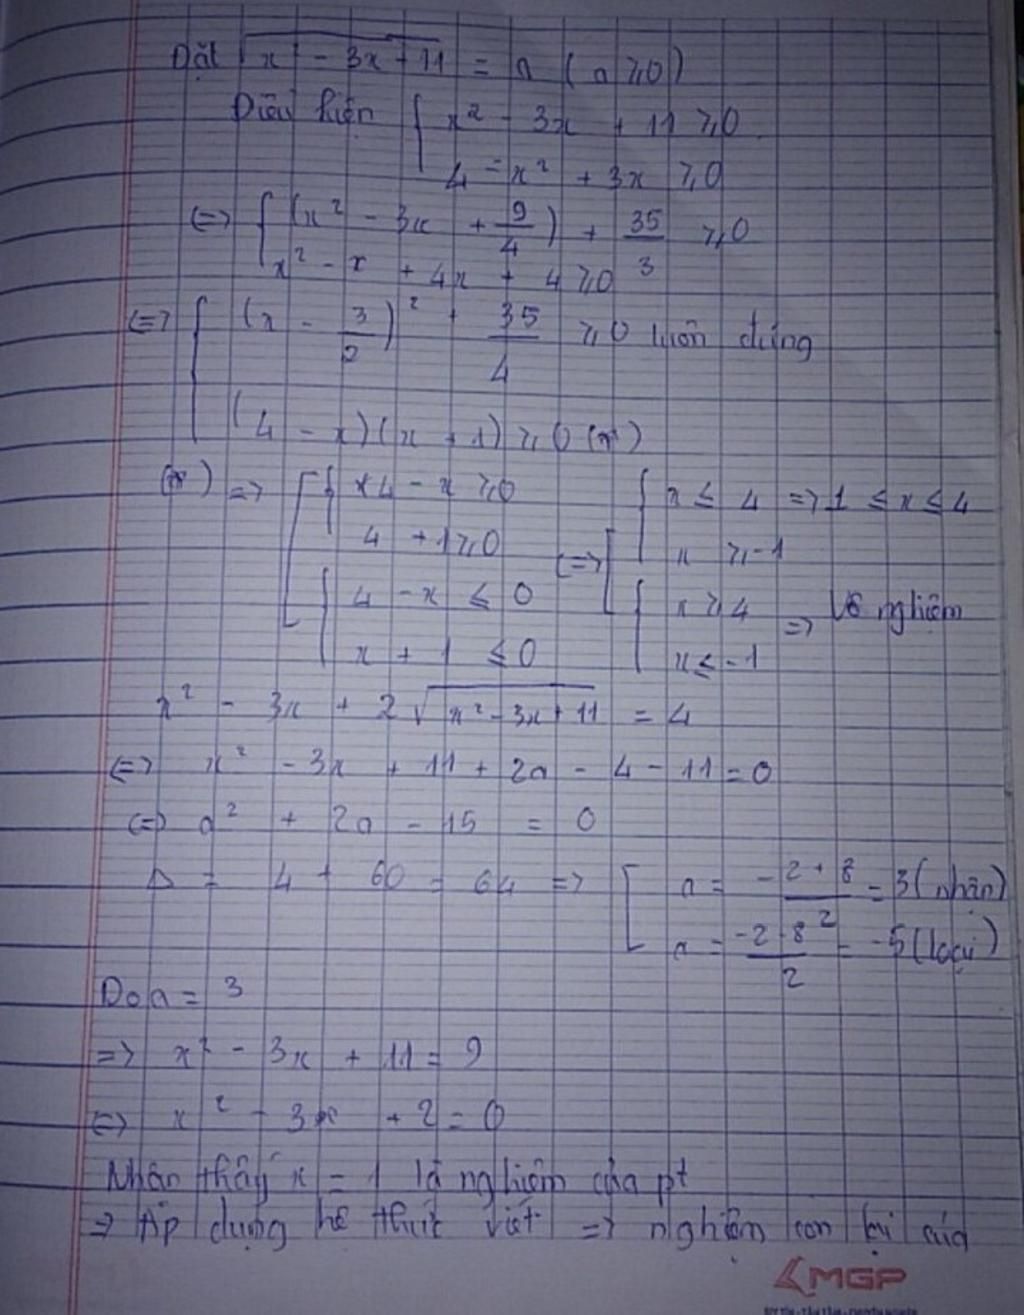 Đặt √x - 3x + 11 = a (a ≥ 0)
Điều kiện { x² - 3x + 11 ≥ 0
4 - x² + 3x ≥ 0
<=> { (x² - 3x + 9/4) + 35/3 ≥ 0
x² - x + 4x + 4 ≥ 0
<=> { (x - 3/2)² + 35/4 ≥ 0 luôn đúng
(4 - x)(x + 1) ≥ 0 (*)
(*) => [ { x4 - x ≥ 0
4 + 1 ≥ 0
{ 4 - x ≤ 0
x + 1 ≤ 0
<=> [ { x ≤ 4 => 1 ≤ x ≤ 4
x ≥ -1
{ x ≥ 4 => Vô nghiệm
x ≤ -1
x² - 3x + 2√x² - 3x + 11 = 4
<=> x² - 3x + 11 + 2a - 4 - 11 = 0
<=> a² + 2a - 15 = 0
Δ = 4 + 60 = 64 => [ a = (-2 + 8)/2 = 3 (nhận)
a = (-2 - 8)/2 = -5 (loại)
Do a = 3
=> x² - 3x + 11 = 9
<=> x² - 3x + 2 = 0
Nhận thấy x = 1 là nghiệm của pt
=> Áp dụng hệ thức viét => nghiệm còn lại của
MGP